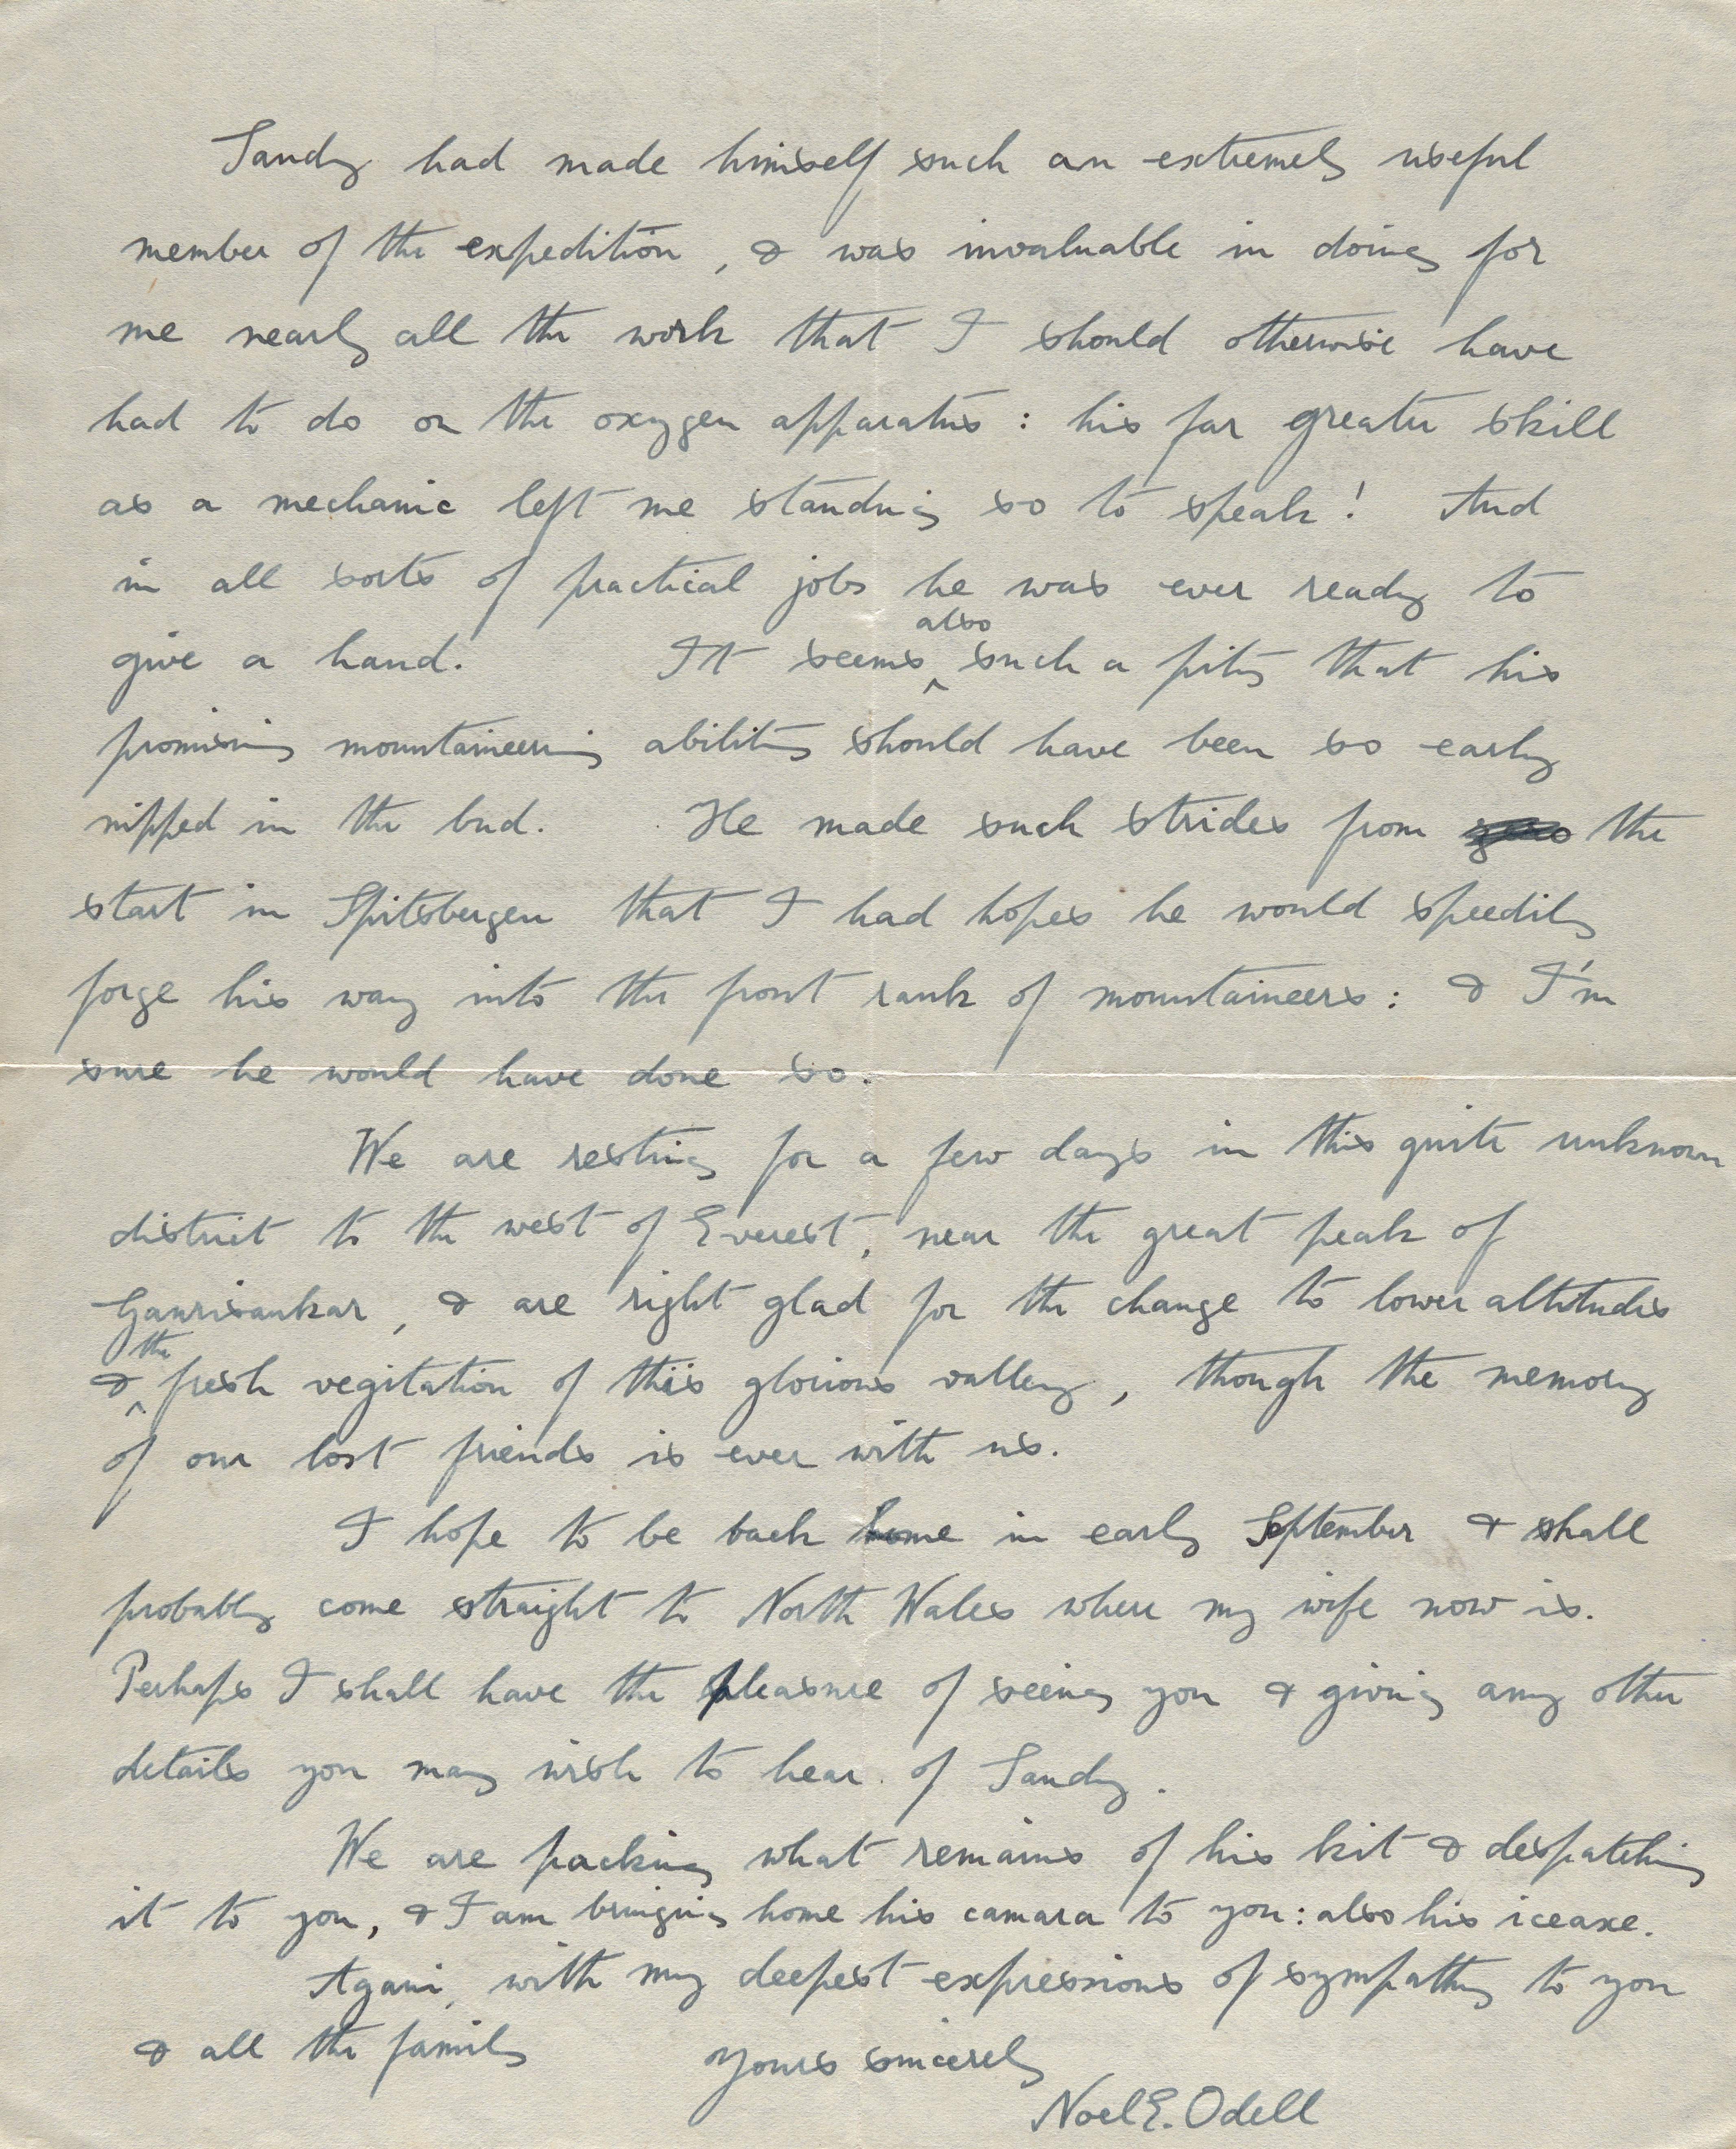 Sandy had made himself such an extremely useful
member of the expedition, & was invaluable in doing for
me nearly all the work that I should otherwise have
had to do on the oxygen apparatus: his far greater skill
as a mechanic left me standing so to speak! And
in all sorts of practical jobs he was ever ready to
give a hand. It seems also such a pity that his
promising mountaineering ability should have been so early
nipped in the bud. He made such strides from the
start in Spitsbergen that I had hopes he would speedily
forge his way into the front rank of mountaineers: & I'm
sure he would have done so.
We are resting for a few days in this quite unknown
district to the west of Everest, near the great peak of
Gaurisankar, & are right glad for the change to lower altitudes
& the fresh vegitation of this glorious valley, though the memory
of our lost friends is ever with us.
I hope to be back home in early September & shall
probably come straight to North Wales where my wife now is.
Perhaps I shall have the pleasure of seeing you & giving any other
details you may wish to hear of Sandy.
We are packing what remains of his kit & despatching
it to you, & I am bringing home his camara to you: also his iceaxe.
Again, with my deepest expressions of sympathy to you
& all the family
Yours sincerely
Noel E. Odell